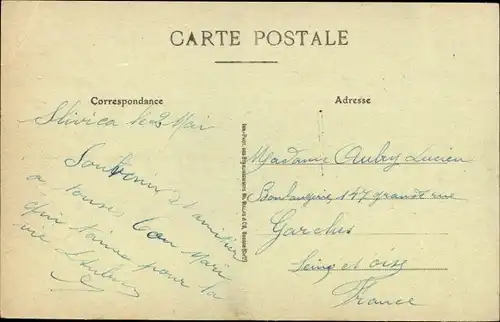 CARTE POSTALE
Correspondance
Adresse
Slivica le 3 Mai
Souvenir et amitier
a tous. Ton Mari
qui t'aime pour la
vie LAubry
Madame Aubry Lucien
Boulangerie 147 grande rue
Garches
Seine et oise
France